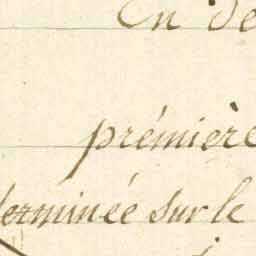 En de
prémière
terminée sur le